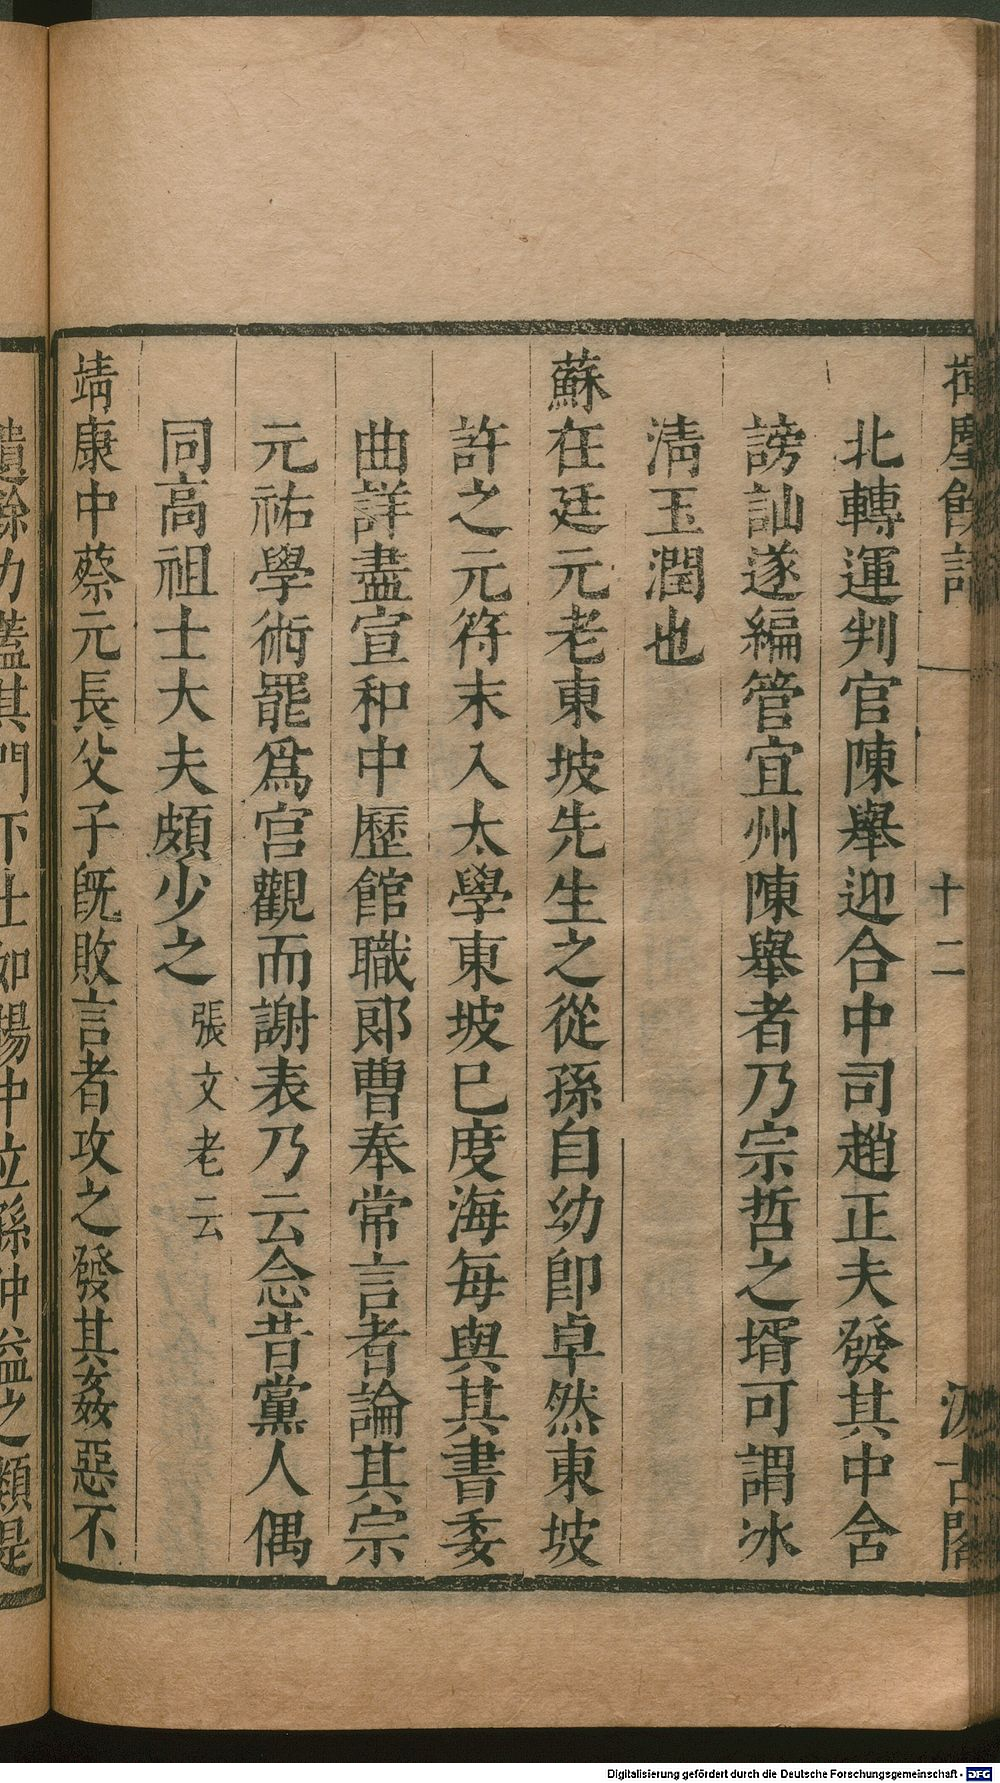 揮麈餘話 十二 汲古閣
北轉運判官陳舉迎合中司趙正夫發其中含
謗訕遂編管宜州陳舉者乃宗哲之壻可謂冰
淸玉潤也
蘇在廷元老東坡先生之從孫自幼卽卓然東坡
許之元符末入太學東坡已度海每與其書委
曲詳盡宣和中歷館職郞曹奉常言者論其宗
元祐學術罷爲宫觀而謝表乃云念昔黨人偶
同高祖士大夫頗少之張文老云
靖康中蔡元長父子旣敗言者攻之發其姦惡不
遺餘力蓋其門下士如楊中立孫仲益之類是
Digitalisierung gefördert durch die Deutsche Forschungsgemeinschaft - DFG